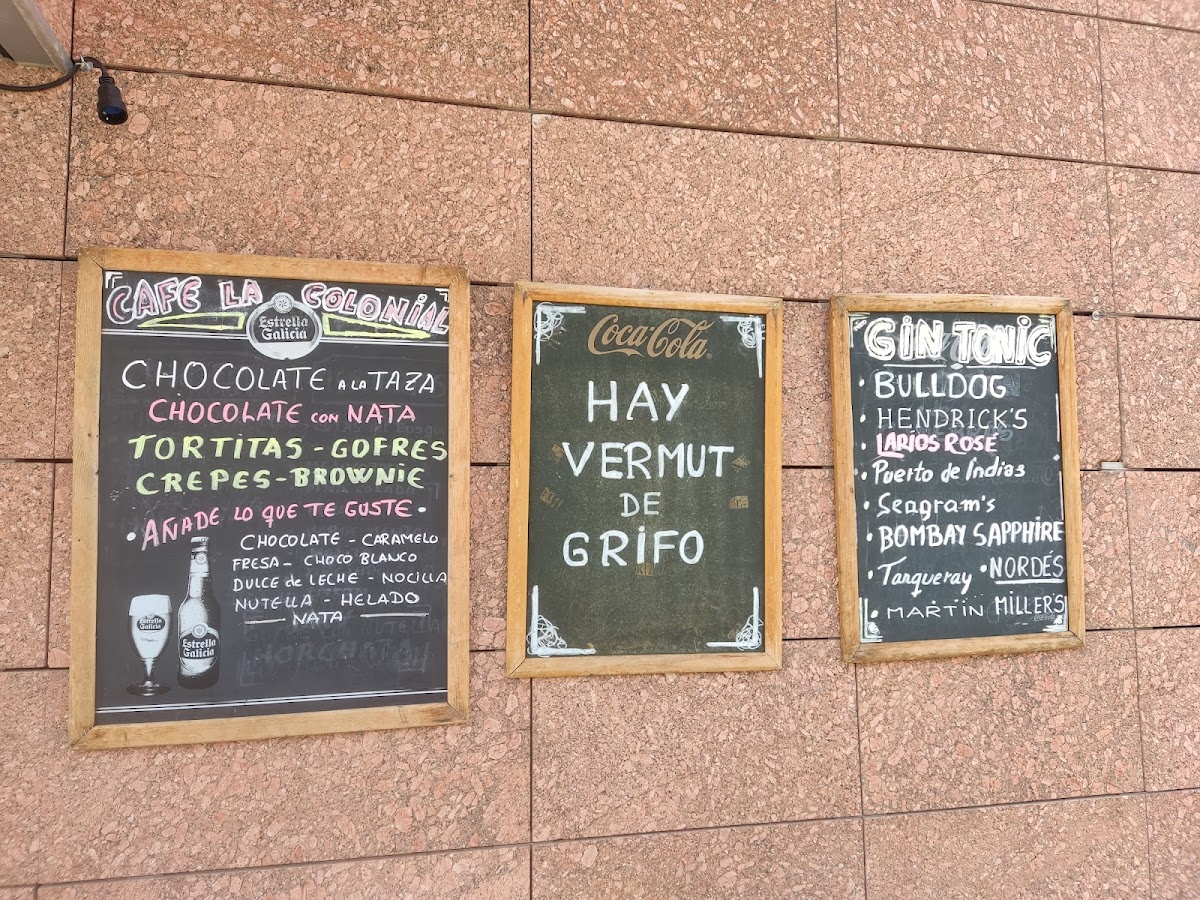 CAFE LA COLONIAL
Estrella
Galicia
CHOCOLATE A LA TAZA
CHOCOLATE CON NATA
TORTITAS - GOFRES
CREPES - BROWNIE
AÑADE LO QUE TE GUSTE
CHOCOLATE - CARAMELO
FRESA - CHOCO BLANCO
DULCE de LECHE - NOCILLA
NUTELLA - HELADO
NATA
Estrella
Galicia
Estrella
Galicia
Coca-Cola
HAY
VERMUT
DE
GRIFO
GIN TONIC
• BULLDOG
• HENDRICK'S
• LARIOS ROSÉ
• Puerto de Indias
• Seagram's
• BOMBAY SAPPHIRE
• Tanqueray • NORDÉS
• MARTIN MILLER'S